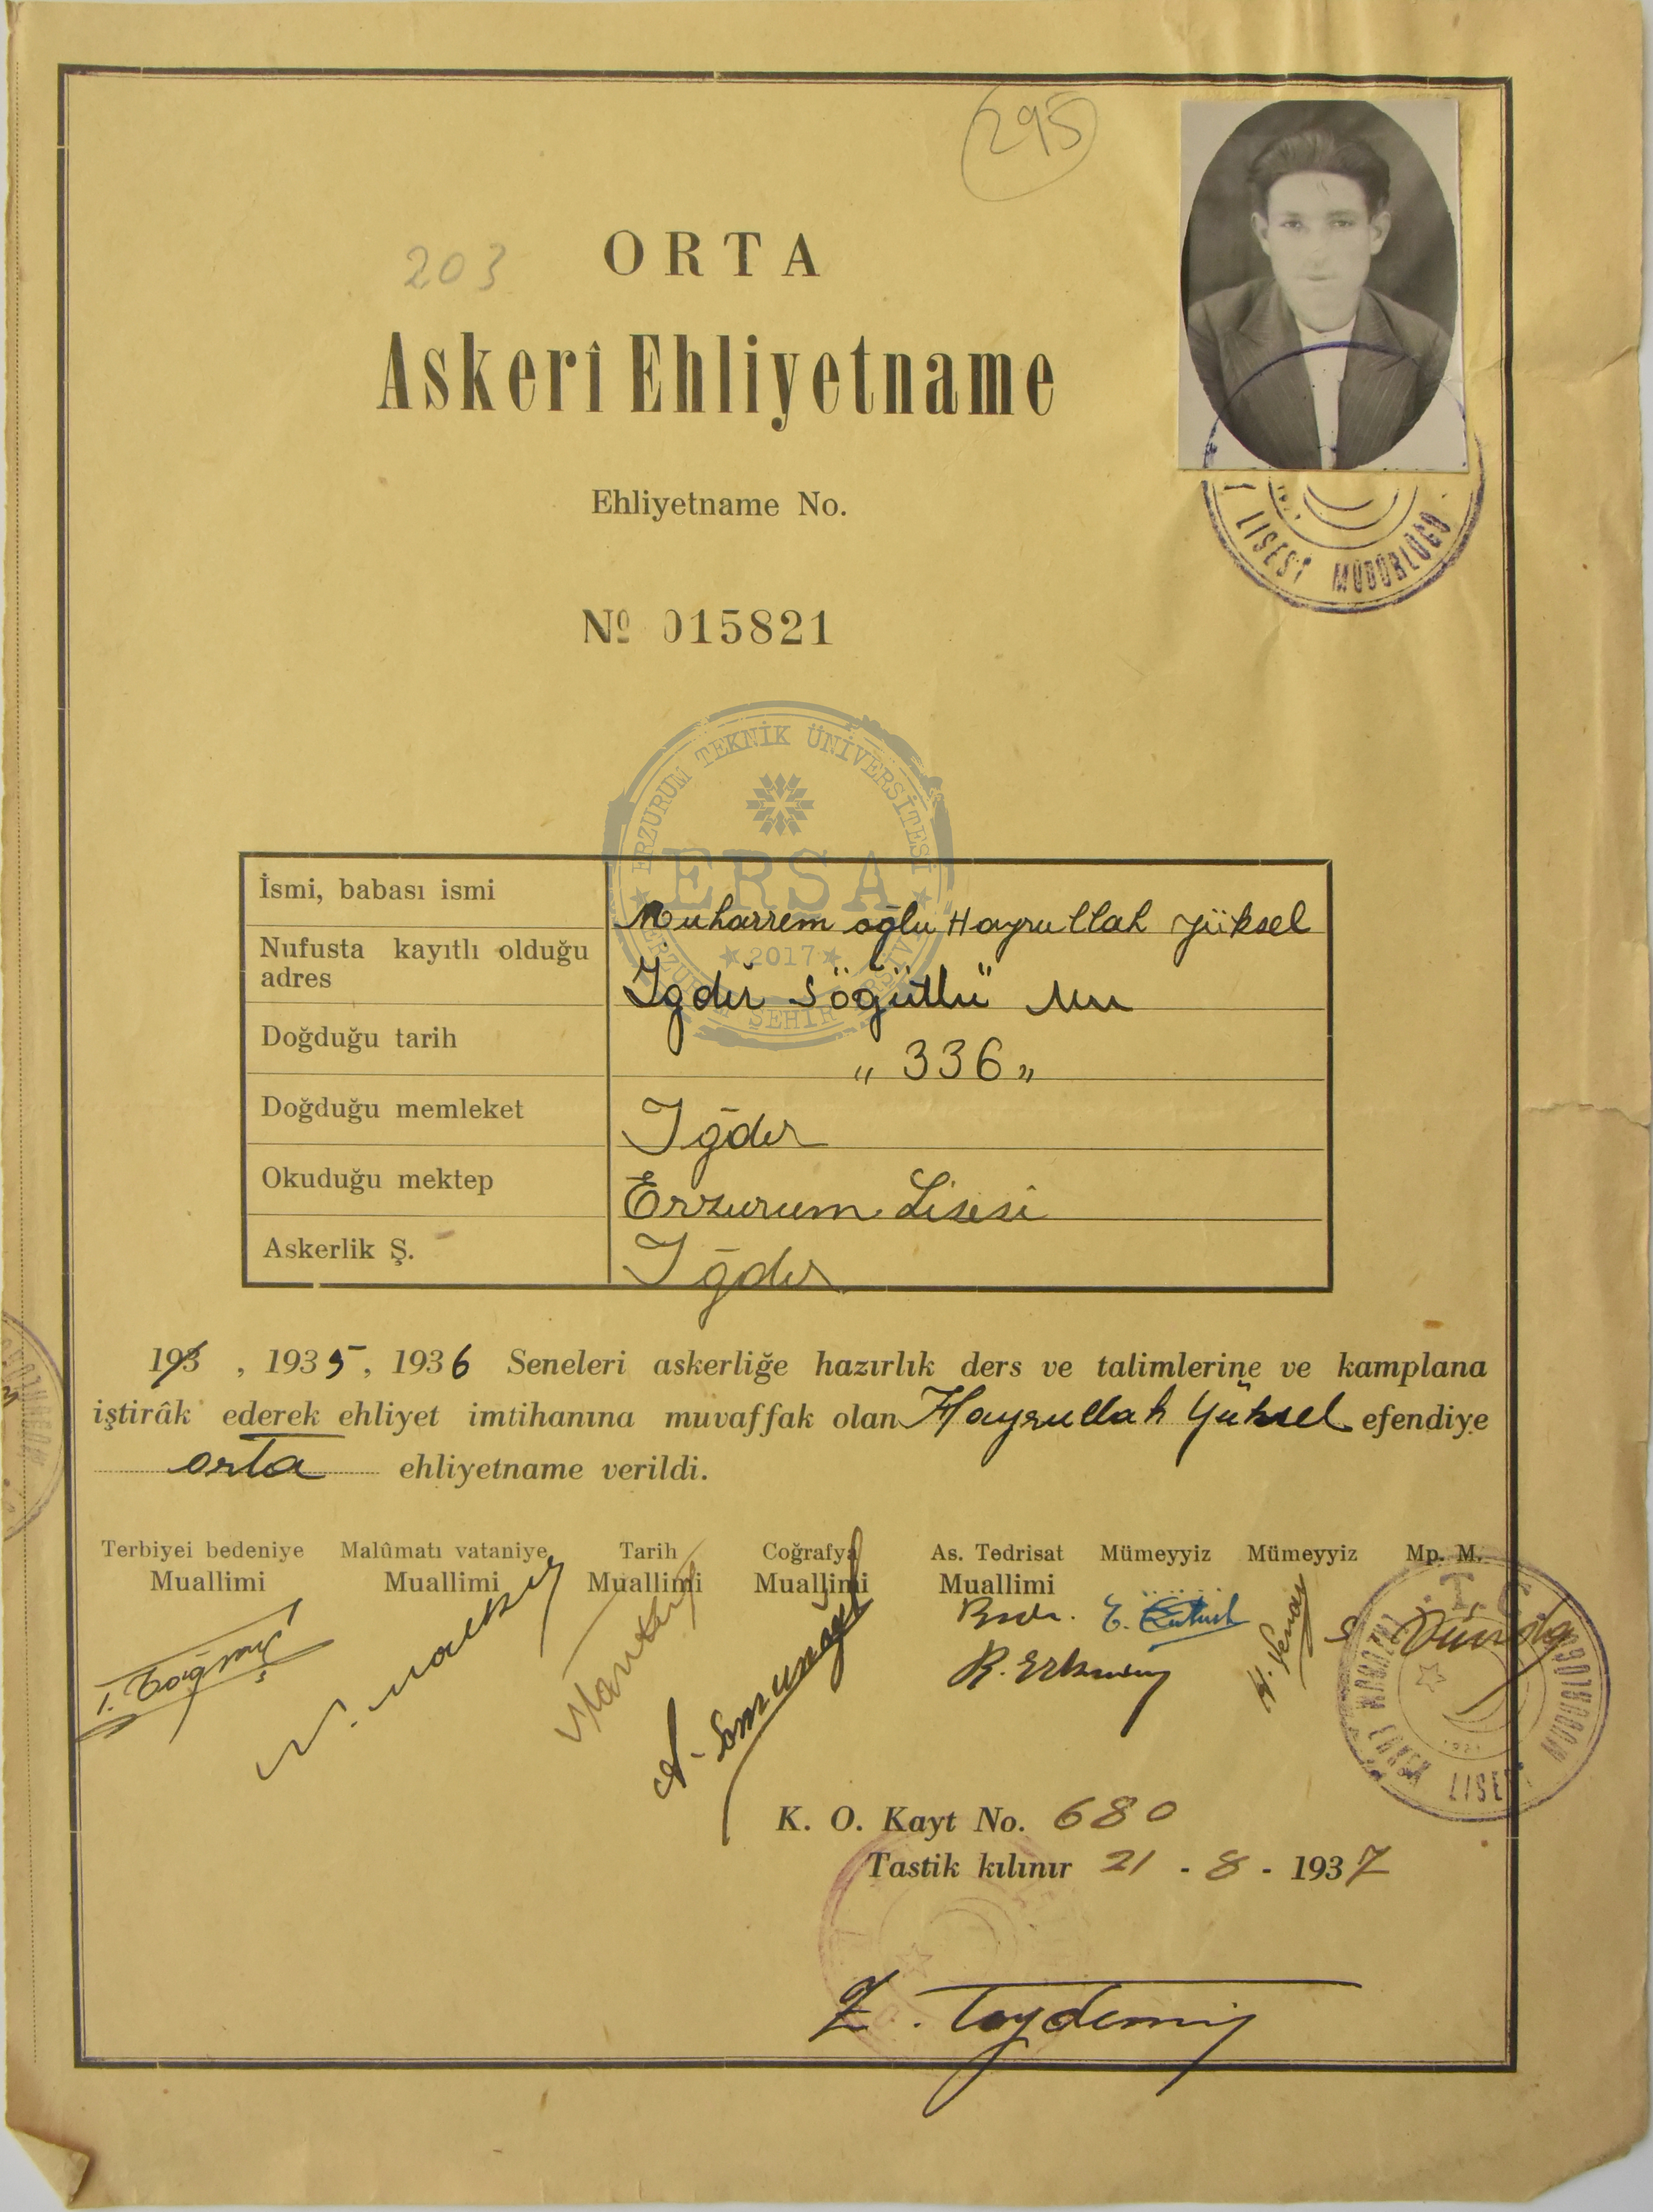 295
203
ORTA
Askerî Ehliyetname
Ehliyetname No.
LİSESİ MÜDÜRLÜĞÜ
Nº 015821
ERZURUM TEKNİK ÜNİVERSİTESİ
ERŞA
2017
ERZURUM ŞEHİR ARŞİVİ
İsmi, babası ismi Muharrem oğlu Hayrullah Yüksel
Nufusta kayıtlı olduğu adres Iğdır Söğütlü
Doğduğu tarih „ 336 „
Doğduğu memleket Iğdır
Okuduğu mektep Erzurum Lisesi
Askerlik Ş. Iğdır
193 , 1935, 1936 Seneleri askerliğe hazırlık ders ve talimlerine ve kamplana
iştirâk ederek ehliyet imtihanına muvaffak olan Hayrullah Yüksel efendiye
orta ehliyetname verildi.
Terbiyei bedeniye Malûmatı vataniye Tarih Coğrafya As. Tedrisat Mümeyyiz Mümeyyiz Mp. M.
Muallimi Muallimi Muallimi Muallimi Muallimi
T. C.
LİSESİ
K. O. Kayt No. 680
Tastik kılınır 21 - 8 - 1937
Z. Toydemir